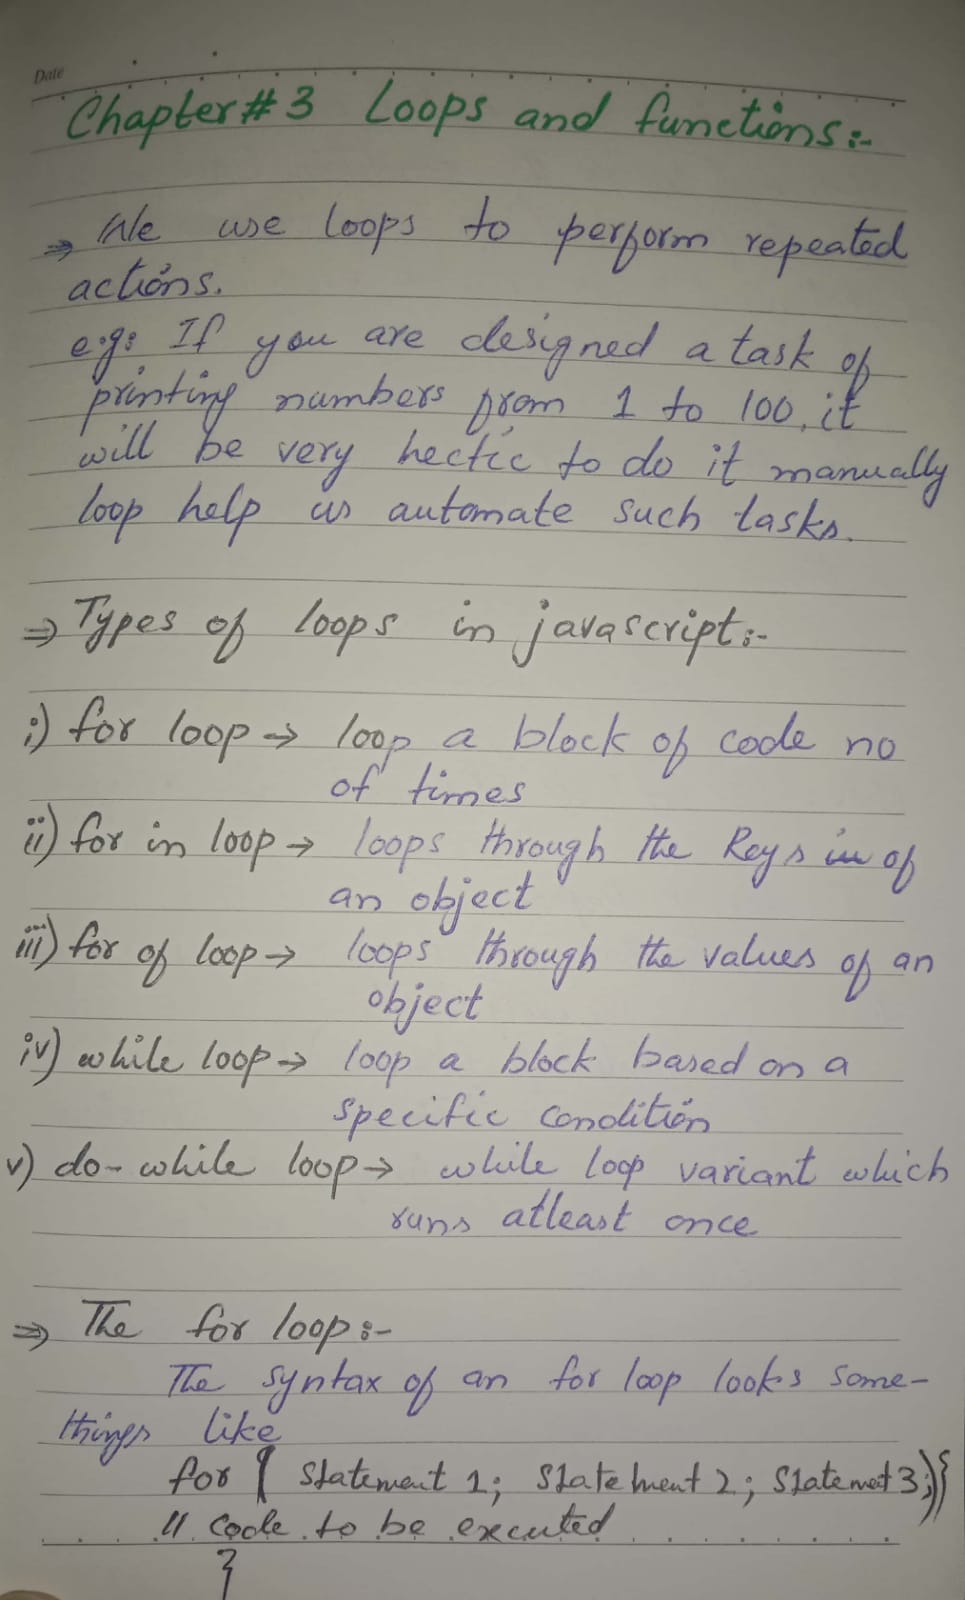 Date
Chapter # 3 Loops and functions:-
⇒ We use loops to perform repeated
actions.
e.g: If you are designed a task of
printing numbers from 1 to 100, it
will be very hectic to do it manually
loop help us automate such tasks.
⇒ Types of loops in javascript:-
i) for loop → loop a block of code no
of times
ii) for in loop → loops through the Keys in of
an object
iii) for of loop → loops through the values of an
object
iv) while loop → loop a block based on a
specific condition
v) do-while loop → while loop variant which
runs atleast once
⇒ The for loop:-
The syntax of an for loop looks some-
things like
for ( statement 1; statement 2; statemet 3;){
// code to be executed
}